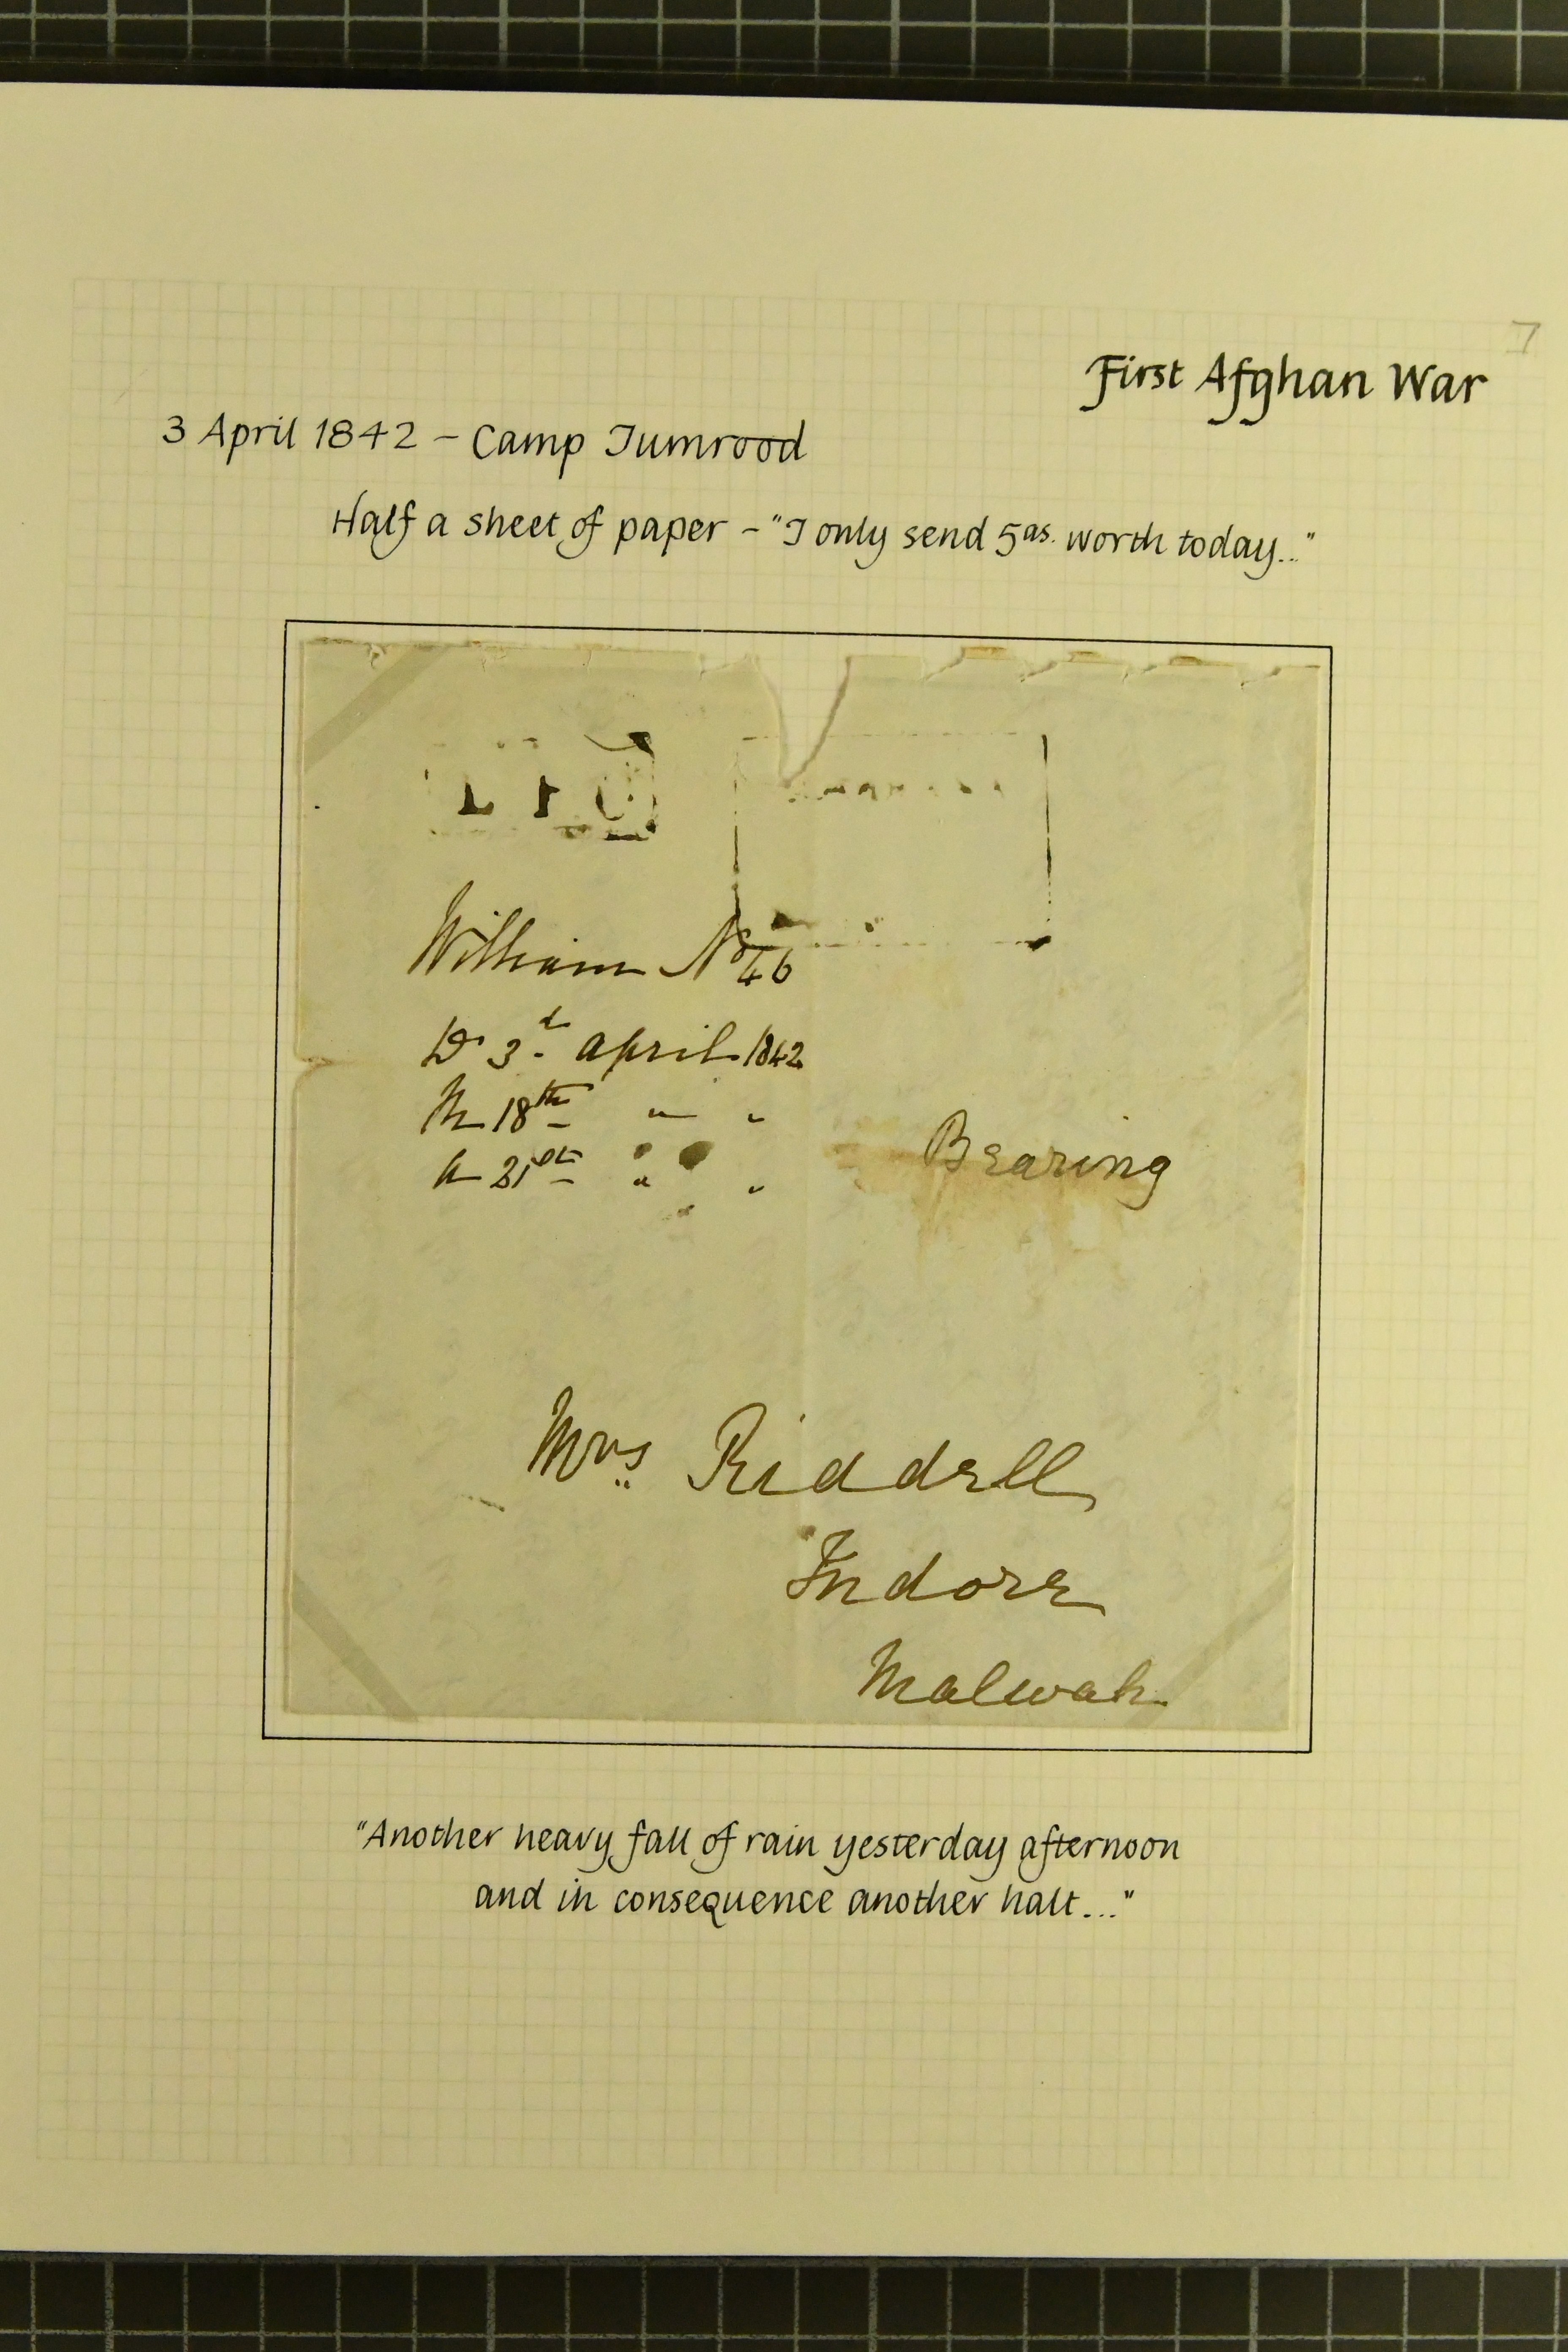 7
First Afghan War
3 April 1842 - Camp Jumrood
Half a sheet of paper - "I only send 5as. worth today..."
William No 46
3d April 1842
18th " "
21st " "
Bearing
Mrs Riddell
Indore
Malwah
"Another heavy fall of rain yesterday afternoon
and in consequence another halt..."